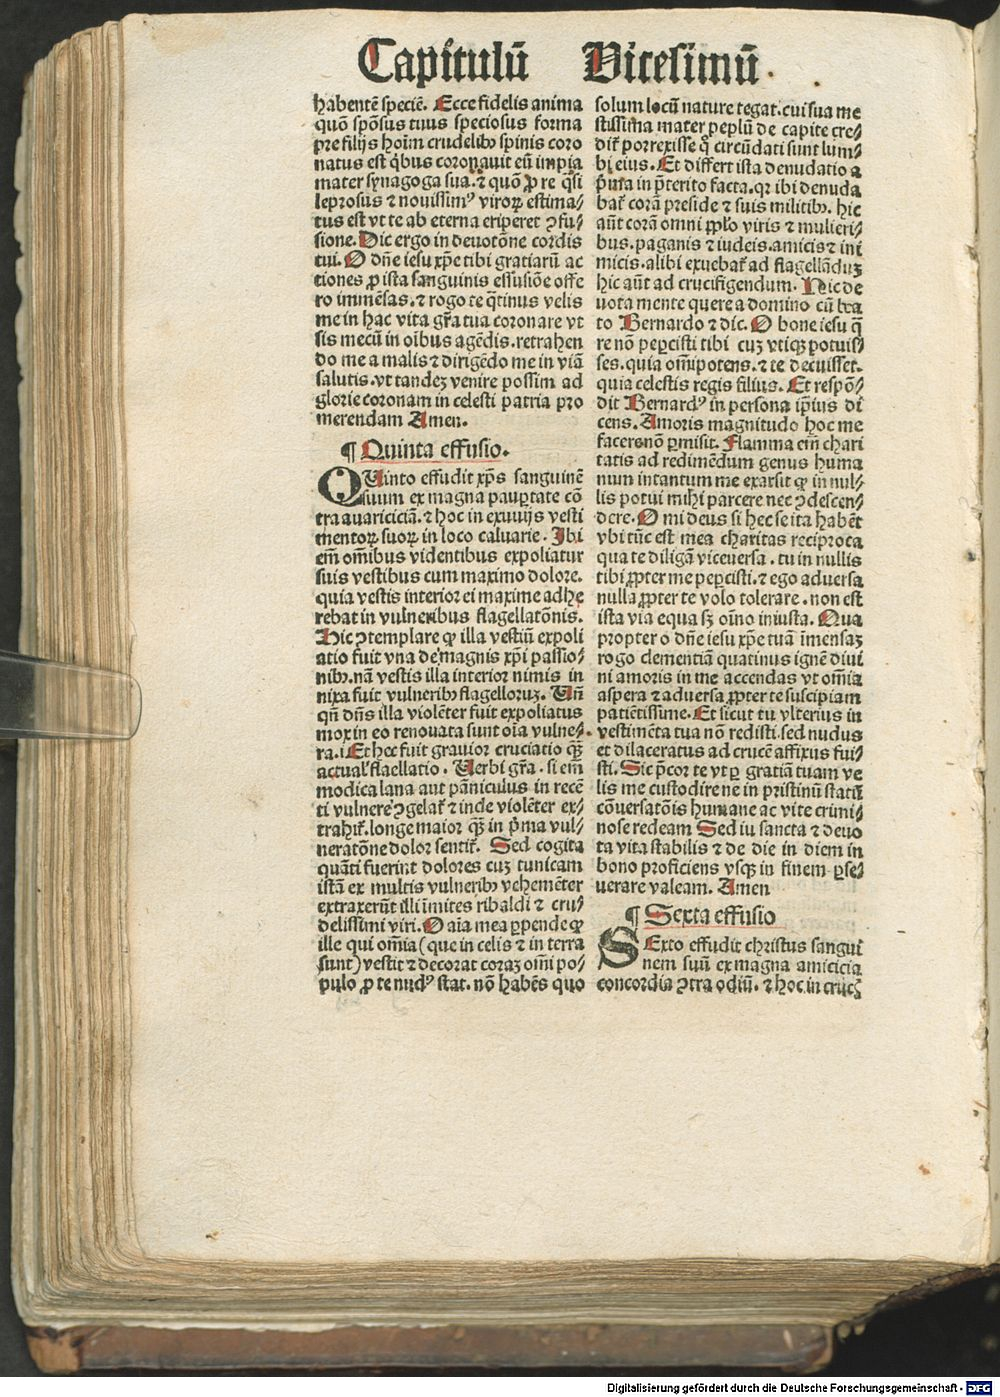 Capitulū Vicesimū
habentē speciē. Ecce fidelis anima
quō spōsus tuus speciosus forma
pre filijs hoīm crudelibꝰ spinis coro
natus est qͥbus coronauit eū impia
mater synagoga sua. ⁊ quō ꝓ re qͣsi
leprosus ⁊ nouissimꝰ viroꝝ estima/
tus est vt te ab eterna eriperet ↄfu/
sione. Dic ergo in deuotōne cordis
tui. O dn̄e iesu xp̄e tibi gratiarū ac
tiones ꝓ ista sanguinis effusiōe offe
ro immēsas. ⁊ rogo te qͣtinus velis
me in hac vita gr̄a tua coronare vt
sis mecū in oībus agēdis. retrahen
do me a malis ⁊ dirigēdo me in viā
salutis. vt tandeʒ venire possim ad
glorie coronam in celesti patria pro
merendam Amen.
¶ Quinta effusio.
QUinto effudit xp̄s sanguinē
suum ex magna paupertate cō
tra auariciā. ⁊ hoc in exuuijs vesti
mentoꝝ suoꝝ in loco caluarie. Ibi
em̄ om̄ibus videntibus expoliatur
suis vestibus cum maximo dolore.
quia vestis interior ei maxime adhe
rebat in vulneribus flagellatōnis.
Hic ↄtemplare ꝙ illa vestiū expoli
atio fuit vna de magnis xp̄i passio/
nibꝰ. nā vestis illa interior nimis in
nixa fuit vulneribꝰ flagelloruʒ. Uñ
qñ dn̄s illa violēter fuit expoliatus
mox in eo renouata sunt oīa vulne/
ra. i. Et hec fuit grauior cruciatio qͣʒ
actual̕ flaellatio. Uerbi gr̄a. si em̄
modica lana aut pānniculus in recē
ti vulnere ↄgelat̕ ⁊ inde violēter ex/
trahit̕. longe maior qͣʒ in pͥma vul/
neratōne dolor sentit̕. Sed cogita
quāti fuerint dolores cuʒ tunicam
istā ex multis vulneribꝰ vehemēter
extraxerūt illi īmites ribaldi ⁊ cru/
delissimi viri. O aīa mea ꝑpende ꝙ
ille qui om̄ia (que in celis ⁊ in terra
sunt) vestit ⁊ decorat coraʒ om̄i po/
pulo ꝓ te nudꝰ stat. nō habēs quo
solum locū nature tegat. cui sua me
stissima mater peplū de capite cre/
dit̕ porrexisse qͦ circūdati sunt lum/
bi eius. Et differt ista denudatio a
pͥma in p̄terito facta. qꝛ ibi denuda
bat̕ corā preside ⁊ suis militibꝰ. hic
aūt corā omni pp̄lo viris ⁊ mulieri/
bus. paganis ⁊ iudeis. amicis ⁊ ini
micis. alibi exuebat̕ ad flagellāduʒ
hic aūt ad crucifigendum. Hic de
uota mente quere a domino cū bea
to Bernardo ⁊ dic. O bone iesu qͣ
re nō peꝑcisti tibi cuʒ vtiqʒ potuis/
ses. quia om̄ipotens. ⁊ te decuisset.
quia celestis regis filius. Et respō/
dit Bernardꝰ in persona ip̄ius di
cens. Amoris magnitudo hoc me
facere nō ꝑmisit. Flamma em̄ chari
tatis ad redimēdum genus huma
num intantum me exarsit ꝙ in nul/
lis potui mihi parcere nec ↄdescen/
dere. O mi deus si hec se ita habēt
vbi tūc est mea charitas reciproca
qua te diligā viceuersa. tu in nullis
tibi ꝓpter me peꝑcisti. ⁊ ego aduersa
nulla ꝓpter te volo tolerare. non est
ista via equa sʒ oīno iniusta. Qua
propter o dn̄e iesu xp̄e tuā īmensaʒ
rogo clementiā quatinus ignē diui
ni amoris in me accendas vt om̄ia
aspera ⁊ aduersa ꝓpter te suscipiam
patiētissime. Et sicut tu vlterius in
vestimēta tua nō redisti. sed nudus
et dilaceratus ad crucē affixus fui/
sti. Sic p̄cor te vt ꝑ gratiā tuam ve
lis me custodire ne in pristinū statū
cōuersatōis humane ac vite crimi/
nose redeam Sed iu sancta ⁊ deuo
ta vita stabilis ⁊ de die in diem in
bono proficiens vsqʒ in finem ꝑse/
uerare valeam. Amen
¶ Sexta effusio
SExto effudit christus sangui
nem suū ex magna amicicia
concordia ↄtra odiū. ⁊ hoc in cruc̄
Digitalisierung gefördert durch die Deutsche Forschungsgemeinschaft - DFG